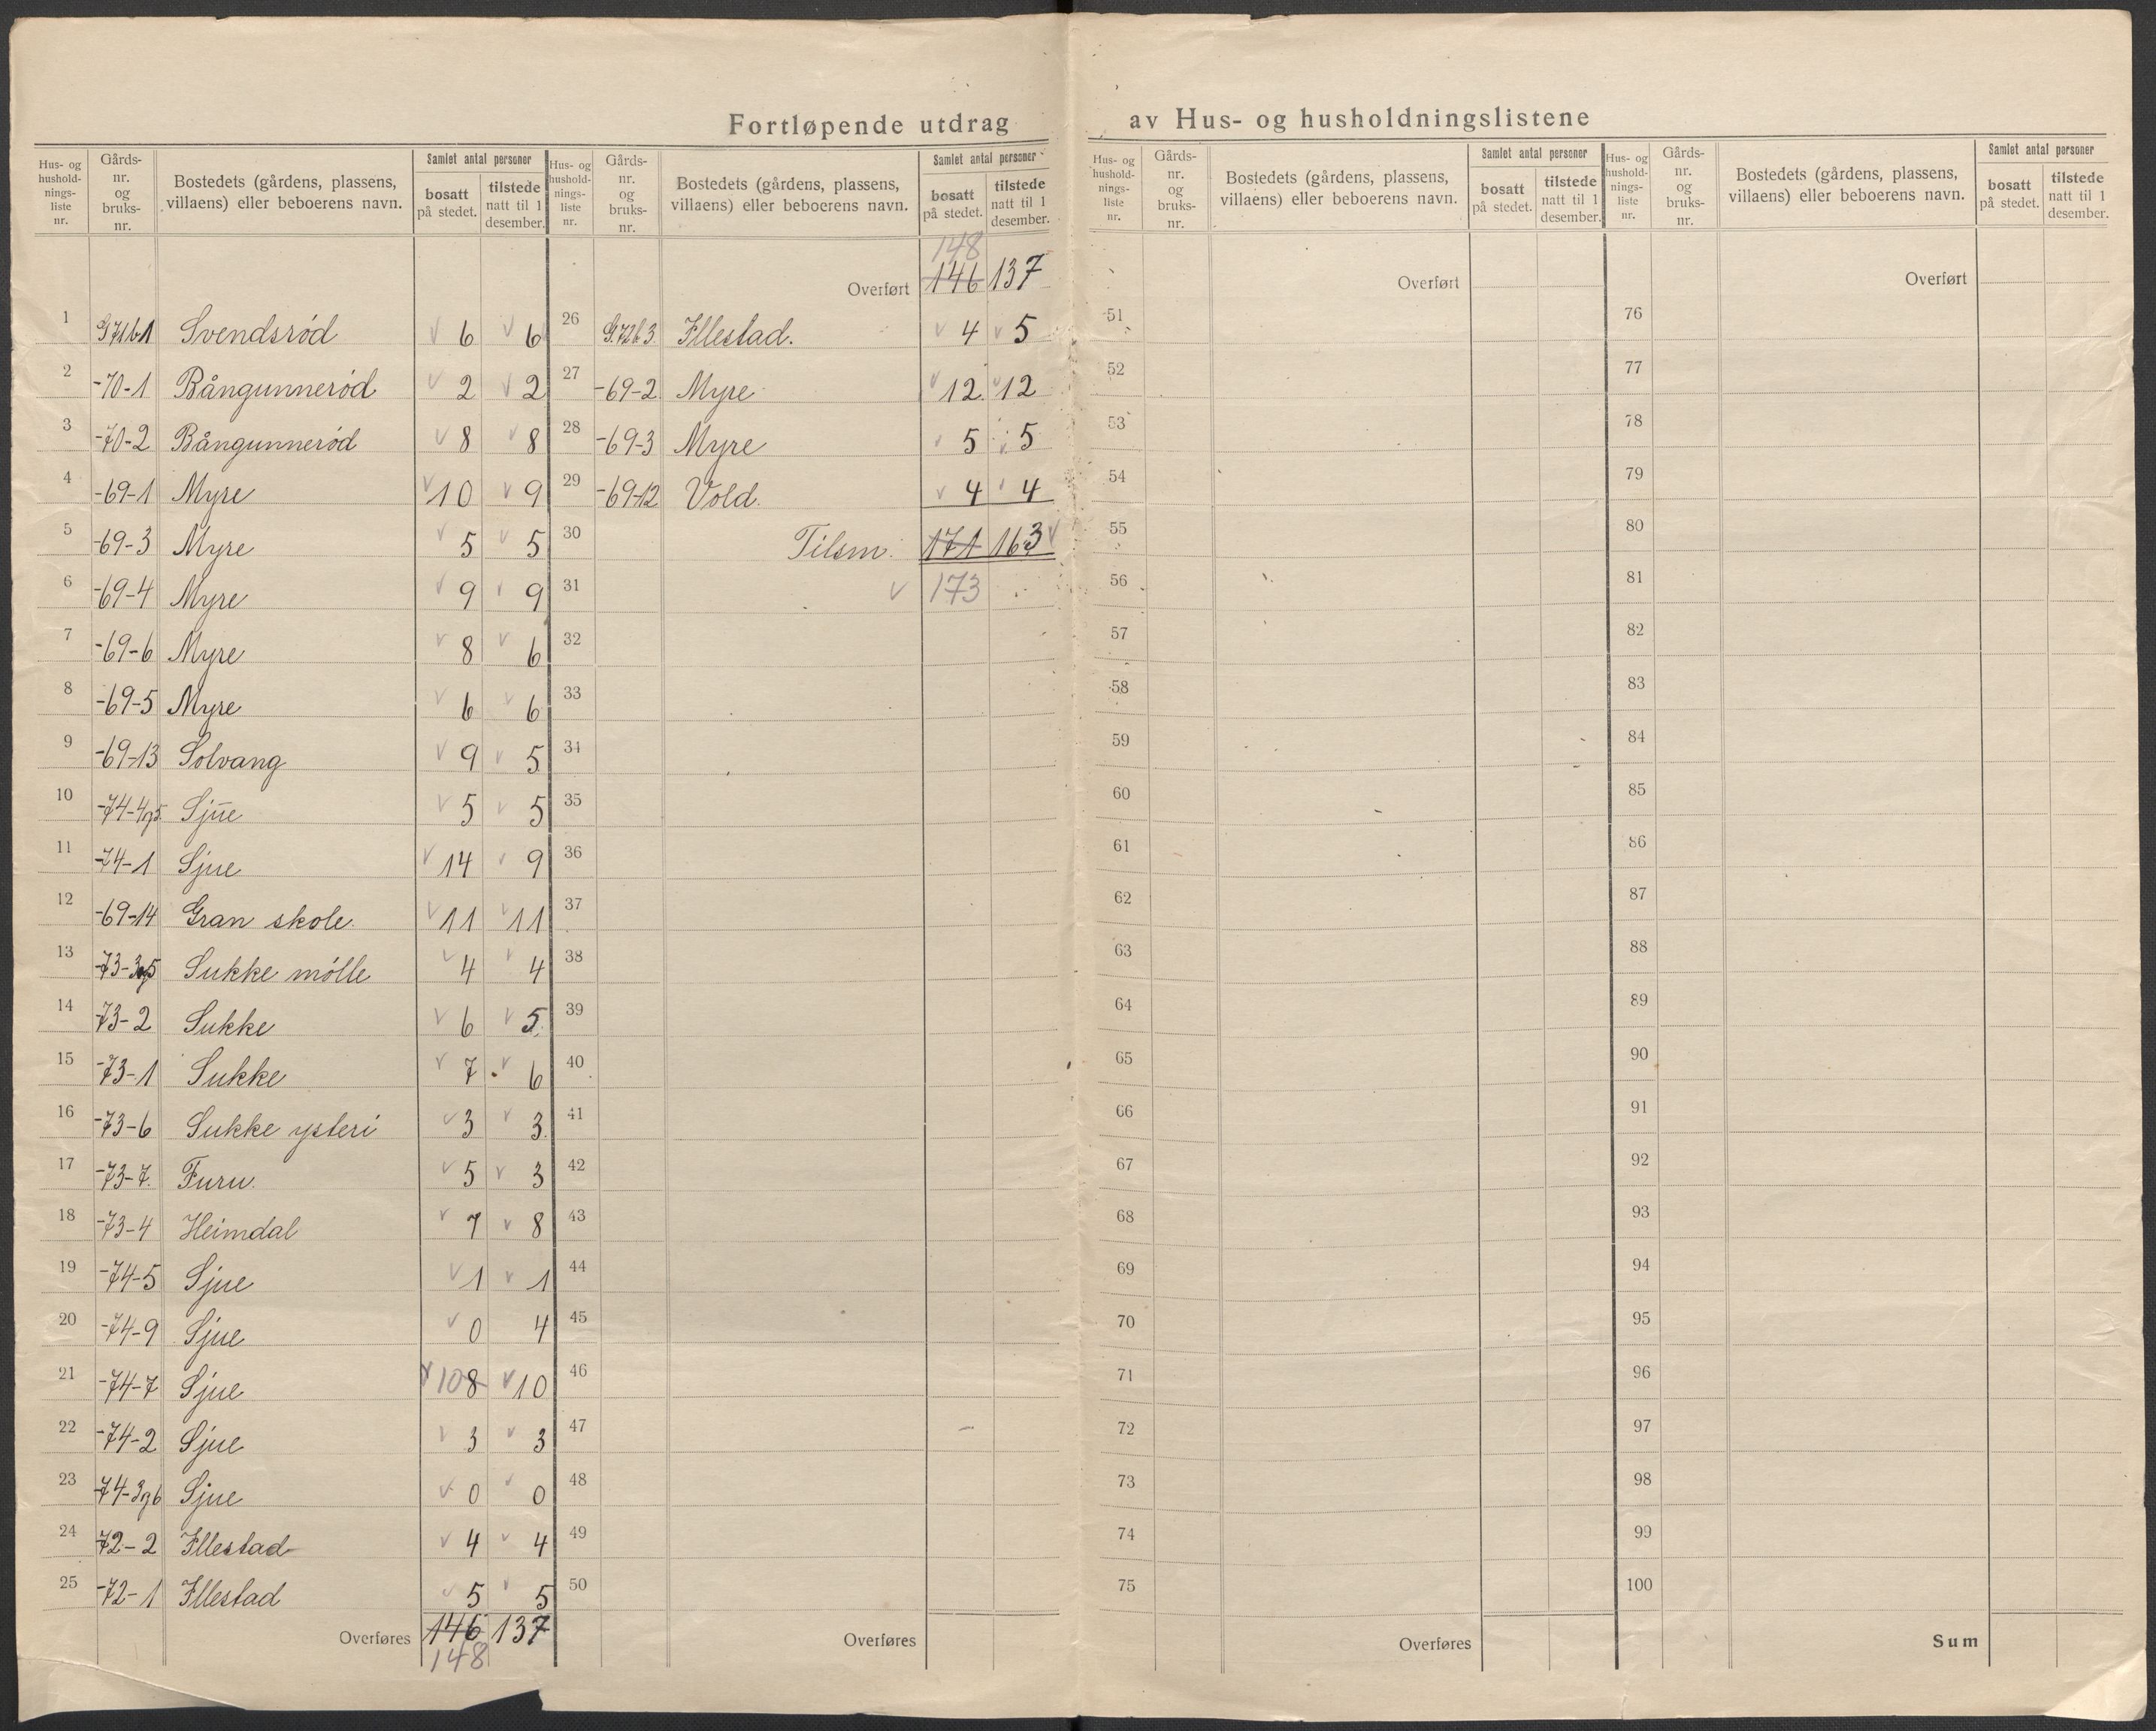 Fortløpende utdrag av Hus- og husholdningslistene
Hus- og husholdnings-liste nr. Gårds-nr. og bruks-nr. Bostedets (gårdens, plassens, villaens) eller beboerens navn. Samlet antal personer bosatt på stedet. tilstede natt til 1 desember.
1 G71b1 Svendsrød 6 6
2 -70-1 Bångunnerød 2 2
3 -70-2 Bångunnerød 8 8
4 -69-1 Myre 10 9
5 -69-3 Myre 5 5
6 -69-4 Myre 9 9
7 -69-6 Myre 8 6
8 -69-5 Myre 6 6
9 -69-13 Solvang 9 5
10 -74-4og5 Sjue 5 5
11 -74-1 Sjue 14 9
12 -69-14 Gran skole. 11 11
13 -73-3og5 Sukke mølle 4 4
14 -73-2 Sukke 6 5
15 -73-1 Sukke 7 6
16 -73-6 Sukke ysteri 3 3
17 -73-7. Furu. 5 3
18 -73-4 Heimdal 7 8
19 -74-5 Sjue 1 1
20 -74-9 Sjue 0 4
21 -74-7 Sjue 10 8 10
22 -74-2 Sjue 3 3
23 -74-3og6 Sjue 0 0
24 72-2 Illestad 4 4
25 -72-1 Illestad 5 5
Overføres 146 137
148
Hus- og husholdnings-liste nr. Gårds-nr. og bruks-nr. Bostedets (gårdens, plassens, villaens) eller beboerens navn. Samlet antal personer bosatt på stedet. tilstede natt til 1 desember.
148
Overført 146 137
26 G.72b3. Illestad. 4 5
27 -69-2 Myre 12 12
28 -69-3 Myre 5 5
29 -69-12 Vold. 4 4
30 Tilsm. 171 163
31 173
32
33
34
35
36
37
38
39
40
41
42
43
44
45
46
47
48
49
50
Overføres
Hus- og husholdnings-liste nr. Gårds-nr. og bruks-nr. Bostedets (gårdens, plassens, villaens) eller beboerens navn. Samlet antal personer bosatt på stedet. tilstede natt til 1 desember.
Overført
51
52
53
54
55
56
57
58
59
60
61
62
63
64
65
66
67
68
69
70
71
72
73
74
75
Overføres
Hus- og husholdnings-liste nr. Gårds-nr. og bruks-nr. Bostedets (gårdens, plassens, villaens) eller beboerens navn. Samlet antal personer bosatt på stedet. tilstede natt til 1 desember.
Overført
76
77
78
79
80
81
82
83
84
85
86
87
88
89
90
91
92
93
94
95
96
97
98
99
100
Sum